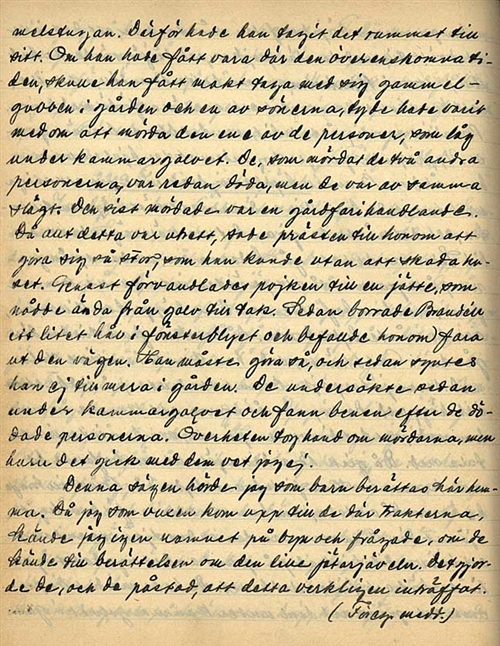 melstugan. Därför hade han tagit det rummet till
sitt. Om han hade fått vara där den överenskomna ti-
den, skulle han fått makt taga med sig gammel-
gubben i gården och en av sönerna, ty de hade varit
med om att mörda den ene av de personer, som låg
under kammargolvet. De, som mördat de två andra
personerna, var redan döda, men de var av samma
släkt. Den sist mördade var en gårdfarihandlande.
Då allt detta var utrett, sade prästen till honom att
göra sig så stor, som han kunde utan att skada hu-
set. Genast förvandlades pojken till en jätte, som
nådde ända från golv till tak. Sedan borrade
ett litet hål i fönsterblyet och befallde honom fara
ut den vägen. Han måste göra så, och sedan syntes
han ej till mera i gården. De undersökte sedan
under kammargolvet och fann benen efter de dö-
dade personerna. Överheten tog hand om mördarna, men
huru det gick med dem vet jag ej.
Denna sägen hörde jag som barn berättas här hem-
ma. Då jag som vuxen kom upp till de där trakterna,
kände jag igen namnet på byn och frågade, om de
kände till berättelsen om den lille djäveln. Det gjor-
de de, och de påstod, att detta verkligen inträffat.
( medd.)